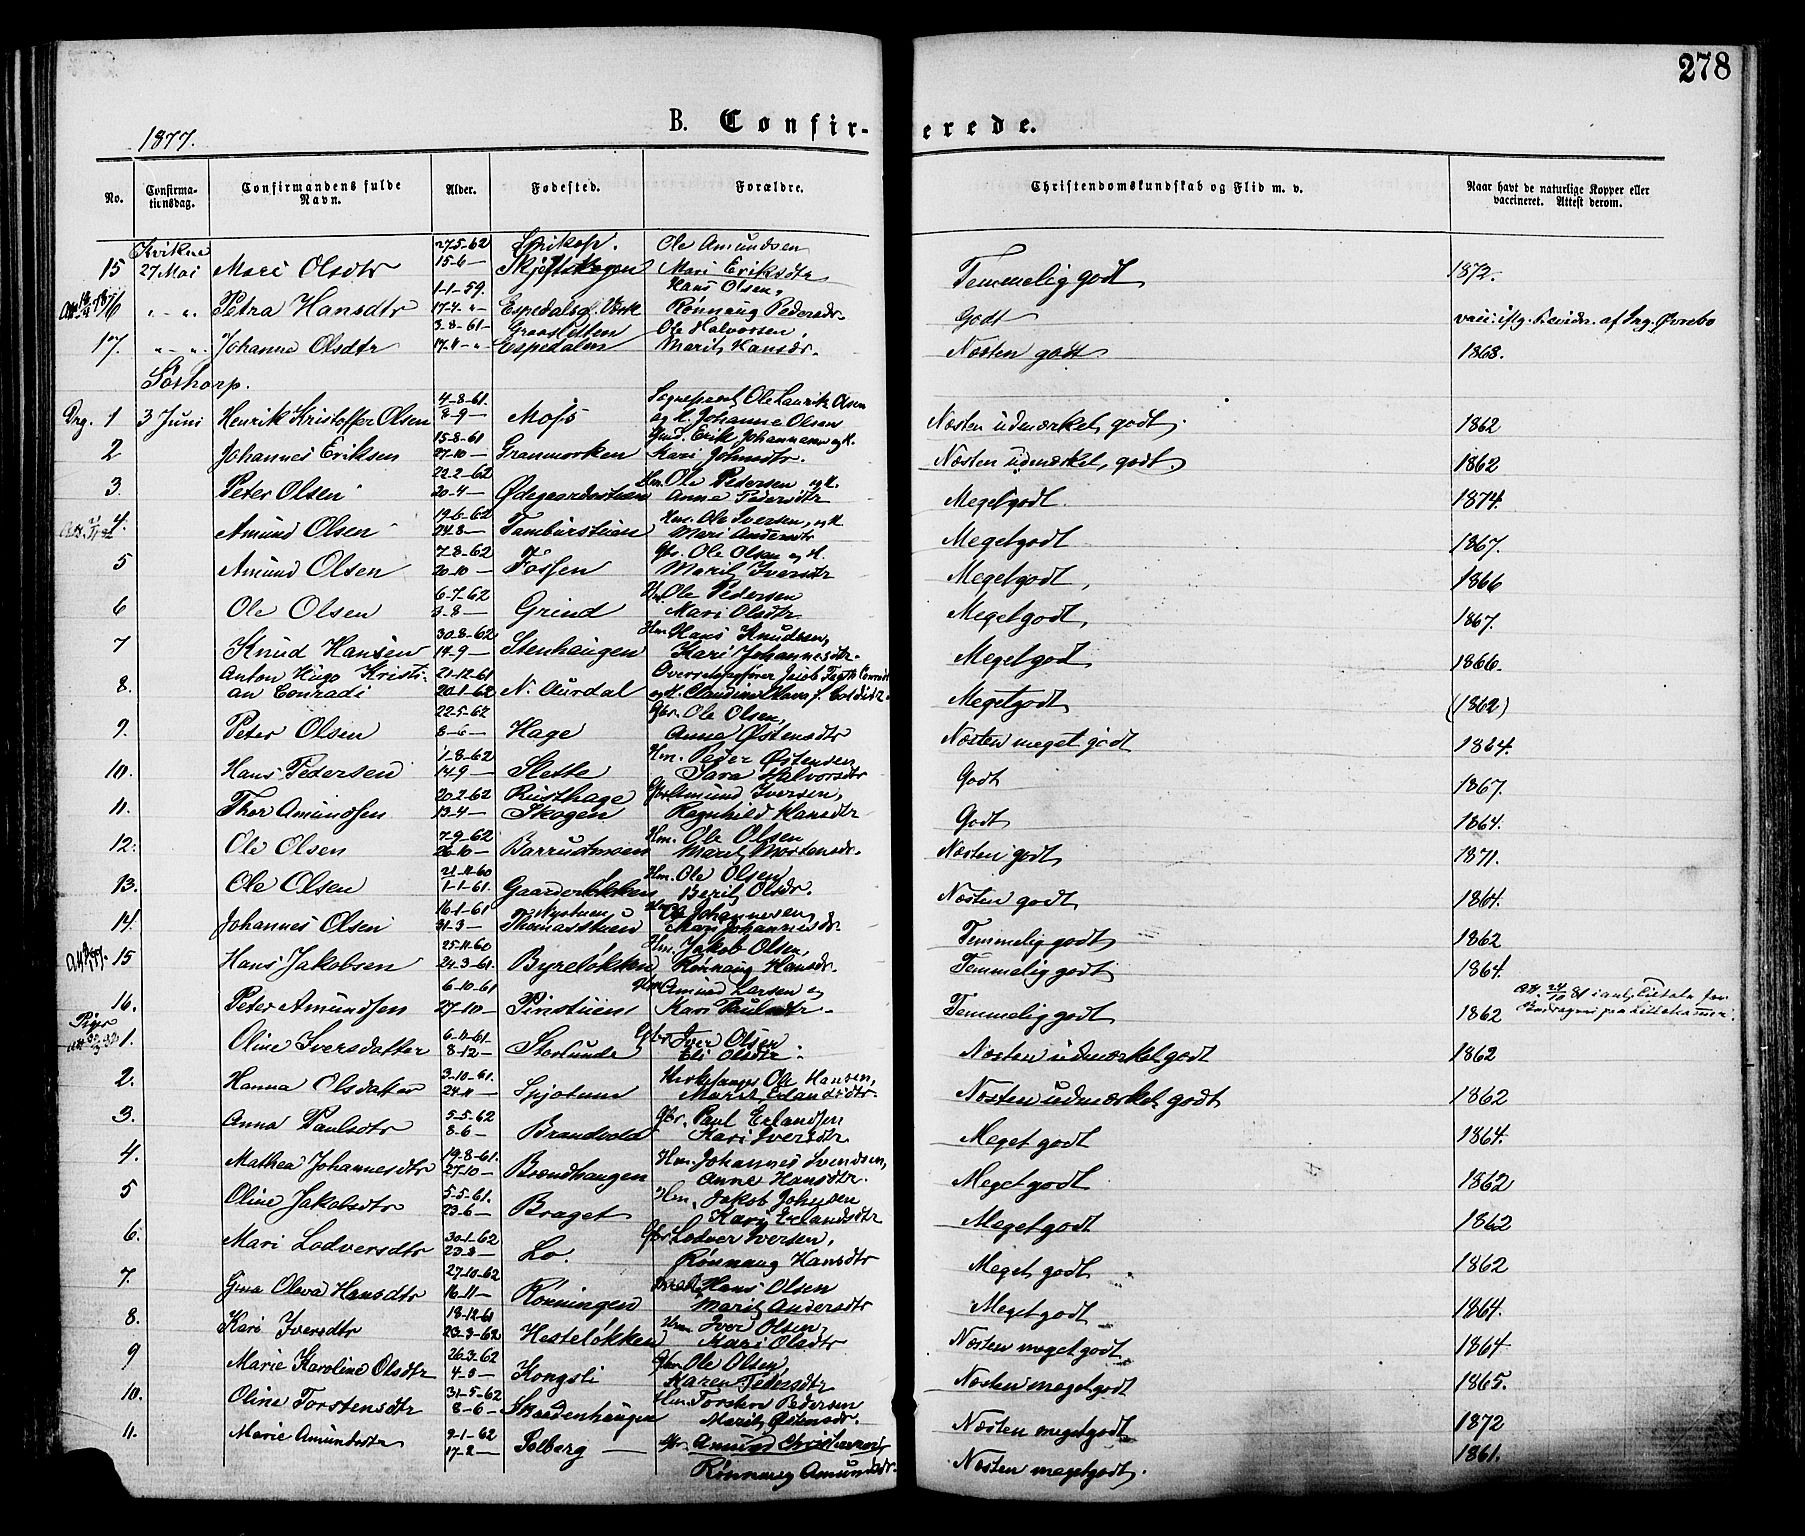 278
B. Confir-erede.
1877.
No. Confirma-tionsdag. Confirmandens fulde Navn. Alder. Fødested. Forældre. Christendomskundskab og Flid m. v. Naar havt de naturlige Kopper eller vaccineret. Attest derom.
Kvikne 27-5-62 Ole Amundsen
15 27 Mai Mari Olsdtr 15-6- Mari Eriksdtr Temmelig godt 1872.
1-1-59. Hans Olsen,
16 " " Petra Hansdtr 17-4 " Espedals Værk Rønnaug Pedersdr Godt
3-8-61 Graasletten Ole Halvorsen,
17. " " Johanne Olsdtr Espedalen Marit Hansdr. Næsten godt 1868.
Søthorp.
4-8-61. Sognepræst Ole Laurik Olsen
Drg. 1 3 Juni Henrik Kristoffer Olsen 8-9- Moss og K. Johanne Olsen Næsten udmærket godt. 1862
15-8-61 Gmd. Erik Johannesen og K.
2 Johannes Eriksen 27-10- Granmorken Kari Johnsdtr. Næsten udmærket, godt. 1862
22-2-62 Hm. Ole Pedersen og K.
3. Peter Olsen 20-4- Ødegaardsstuen Anne Pedersdtr Meget godt 1874.
19-6-62 Hm. Ole Iversen, og K
4. Amund Olsen 24-8- Tamburstuen Mari Andersdtr Meget godt 1867.
7-8-62 Gbr. Ole Olsen og K.
5 Amund Olsen 20-10- Fossen Marit Iversdtr Meget godt, 1866
6-7-62 Ole Pedersen
6 Ole Olsen 3-8- Grind Mari Olsdtr Meget godt, 1867.
30-8-62 Hm. Hans Knudsen,
7 Knud Hansen 19-9- Stenhaugen Kari Johannesdtr. Meget godt 1866.
Anton Hugo Kristi- 21-12-61 Overretsprof
8. an Conradi 20-1-62 N. Aurdal Meget godt (1862)
22-5-62 Gbr. Ole Olsen,
9. Peter Olsen 8-6- Hage Anne Østensdtr Næsten meget godt 1864.
1-8-62 Hm. Peder Østensen
10. Hans Pedersen 14-9- Slette Sara Halvorsdtr Godt 1867.
20-2-62 Rusthage Gbr. Amund Iversen,
11. Thor Amundsen 13-4- Skogen Ragnhild Hansdtr Godt 1864.
7-9-62 Hm. Ole Olsen
12. Ole Olsen 26-10- Marit Mortensdr. Næsten godt 1871.
21-11-60 Hm. Ole Olsen
13. Ole Olsen 1-1-61. Gaarderløkken Berit Olsdr. Næsten godt 1864.
16-1-61 Nystuen Johannesen
14. Johannes Olsen 31-3- Thomasstuen Mari Johannesdr Temmelig godt 1862
25-11-60 Hm. Jakob Olsen,
15 Hans Jakobsen 24-3-61. Byreløkken Rønnaug Hansdr. Temmelig godt 1864.
6-10-61 Hm. Amund Larsen og
16. Peter Amundsen 27-10- Pinstuen Kari Paulsdtr. Temmelig godt 1862
Piger 6-11-61. Gbr. Iver Olsen
1. Oline Iversdatter 8-12- Storlunde Eli Olsdtr. Næsten udmærket godt 1862
3-10-61. Kirkesanger Ole Hansen,
2. Hanna Olsdatter 24-11- Marit Erlandsdtr. Næsten udmærket godt 1862
5-5-62 Gbr. Paul Erlandsen
3. Anna Paulsdtr 8-6- Brandvold Kari Iversdtr Meget godt 1864.
19-8-61. Hm. Johannes Svendsen,
4. Mathea Johannesdtr 27-10- Brændhaugen Anne Hansdtr. Meget godt 1862
5-5-61. Hm. Jakob Johnsen
5 Oline Jakobsdtr 23-6- Braget Kari Erlandsdtr Meget godt 1862
30-1-62 Gbr. Lodver Iversen,
6. Mari Lodversdtr Lo. Rønnaug Hansdtr Meget godt 1862
27-10-62 Hans Olsen
7. Gina Olava Hansdtr 16-11- Rønningen Marit Andersdtr Meget godt 1864.
18-12-61 Hm. Iver Olsen,
8. Kari Iversdtr 23-3-62 Hesteløkken Mari Olsdtr Næsten meget godt 1864
26-3-62 Gbr. Ole Olsen,
9 Marie Karoline Olsdtr Kongsli Karen Pedersdtr Næsten meget godt 1865.
31-5-62 Hm. Torsten Pedersen
10. Oline Torstensdtr 8-6- Skaadenhaugen Marit Østensdr. Næsten meget godt 1872
9-1-62 Gbr. Amund Christensen
11. Marie Amundsdtr 17-2- Solberg Rønnaug Amundsdr. Næsten meget godt. 1861.